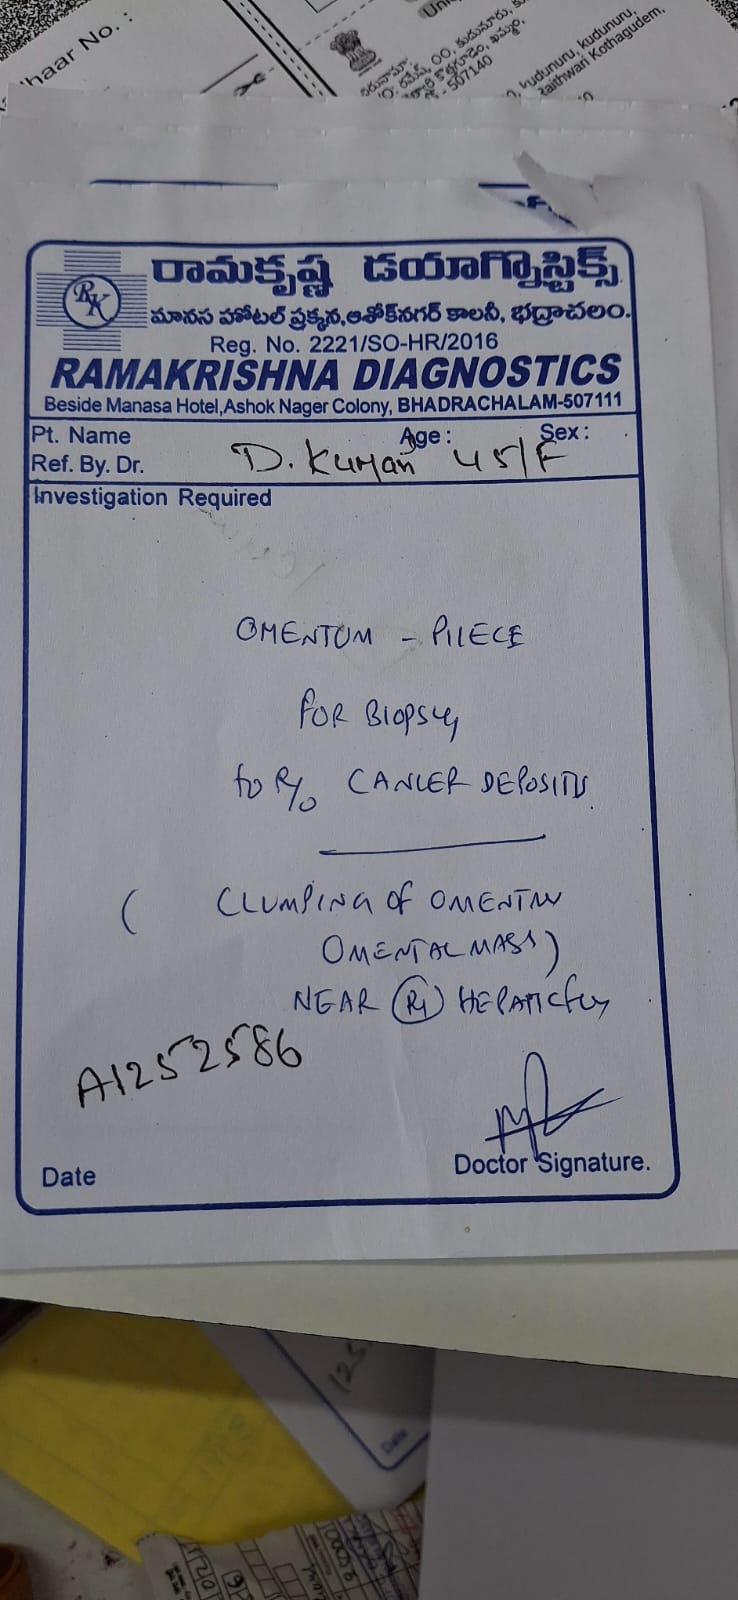 haar No.:
- 507140
, kudunuru, kudunuru,
aithwari Kothagudem,
RK
రామకృష్ణ డయాగ్నొస్టిక్స్
మానస హోటల్ ప్రక్కన,అశోక్‌నగర్ కాలనీ, భద్రాచలం.
Reg. No. 2221/SO-HR/2016
RAMAKRISHNA DIAGNOSTICS
Beside Manasa Hotel,Ashok Nager Colony, BHADRACHALAM-507111
Pt. Name Age: Sex:
Ref. By. Dr. D. Kumari 45/F
Investigation Required
OMENTUM - PIIECE
FOR BIOPSY
to R/o CANCER DEPOSITS.
( CLUMPING OF OMENTUM
OMENTAL MASS)
NEAR Rt HEPATIC
A1252586
Date Doctor Signature.
Date